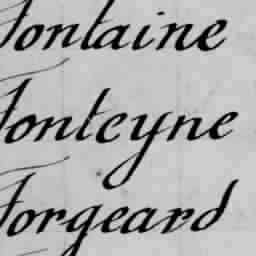 Fontaine
Fonteyne
Forgeard